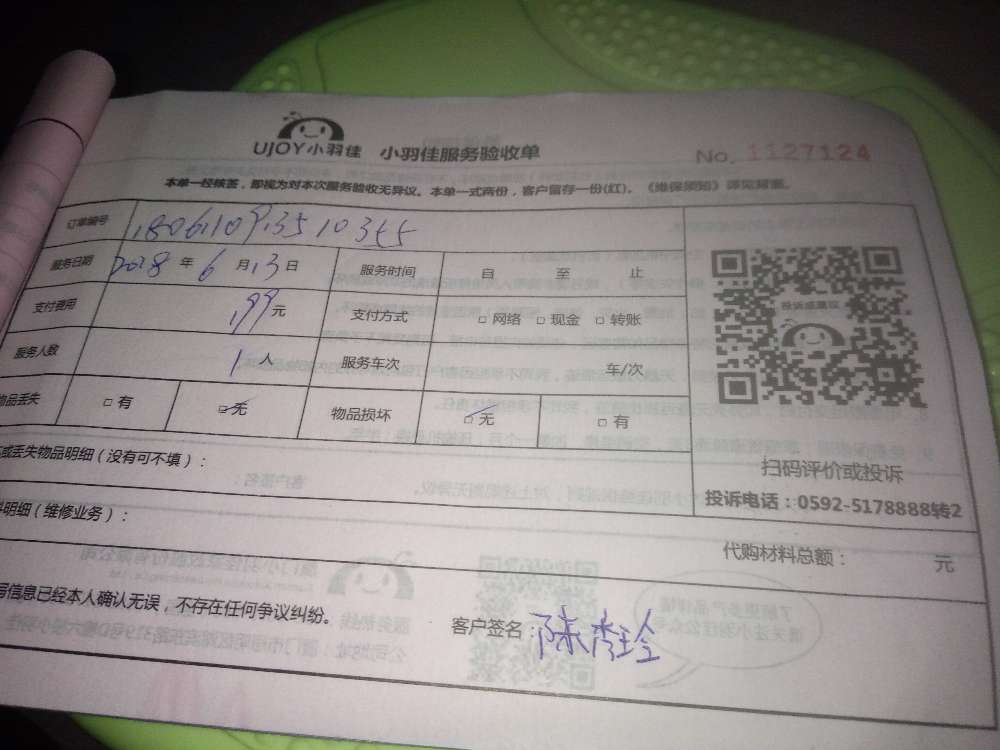 UJOY小羽佳 小羽佳服务验收单 No. 1127124
本单一经核签，即视为对本次服务验收无异议。本单一式两份，客户留存一份(红)。《维保须知》详见背面。
订单编号 180611093510355
服务日期 2018 年 6 月 13 日 服务时间 自 至 止
支付费用 199 元 支付方式 □ 网络 □ 现金 □ 转账
服务人数 1 人 服务车次 车/次
物品丢失 □ 有 □ 无 物品损坏 □ 无 □ 有
投诉或建议
扫码评价或投诉
投诉电话：0592-5178888转2
或丢失物品明细（没有可不填）：
明细（维修业务）：
代购材料总额： 元
写信息已经本人确认无误，不存在任何争议纠纷。
客户签名：陈秀玲